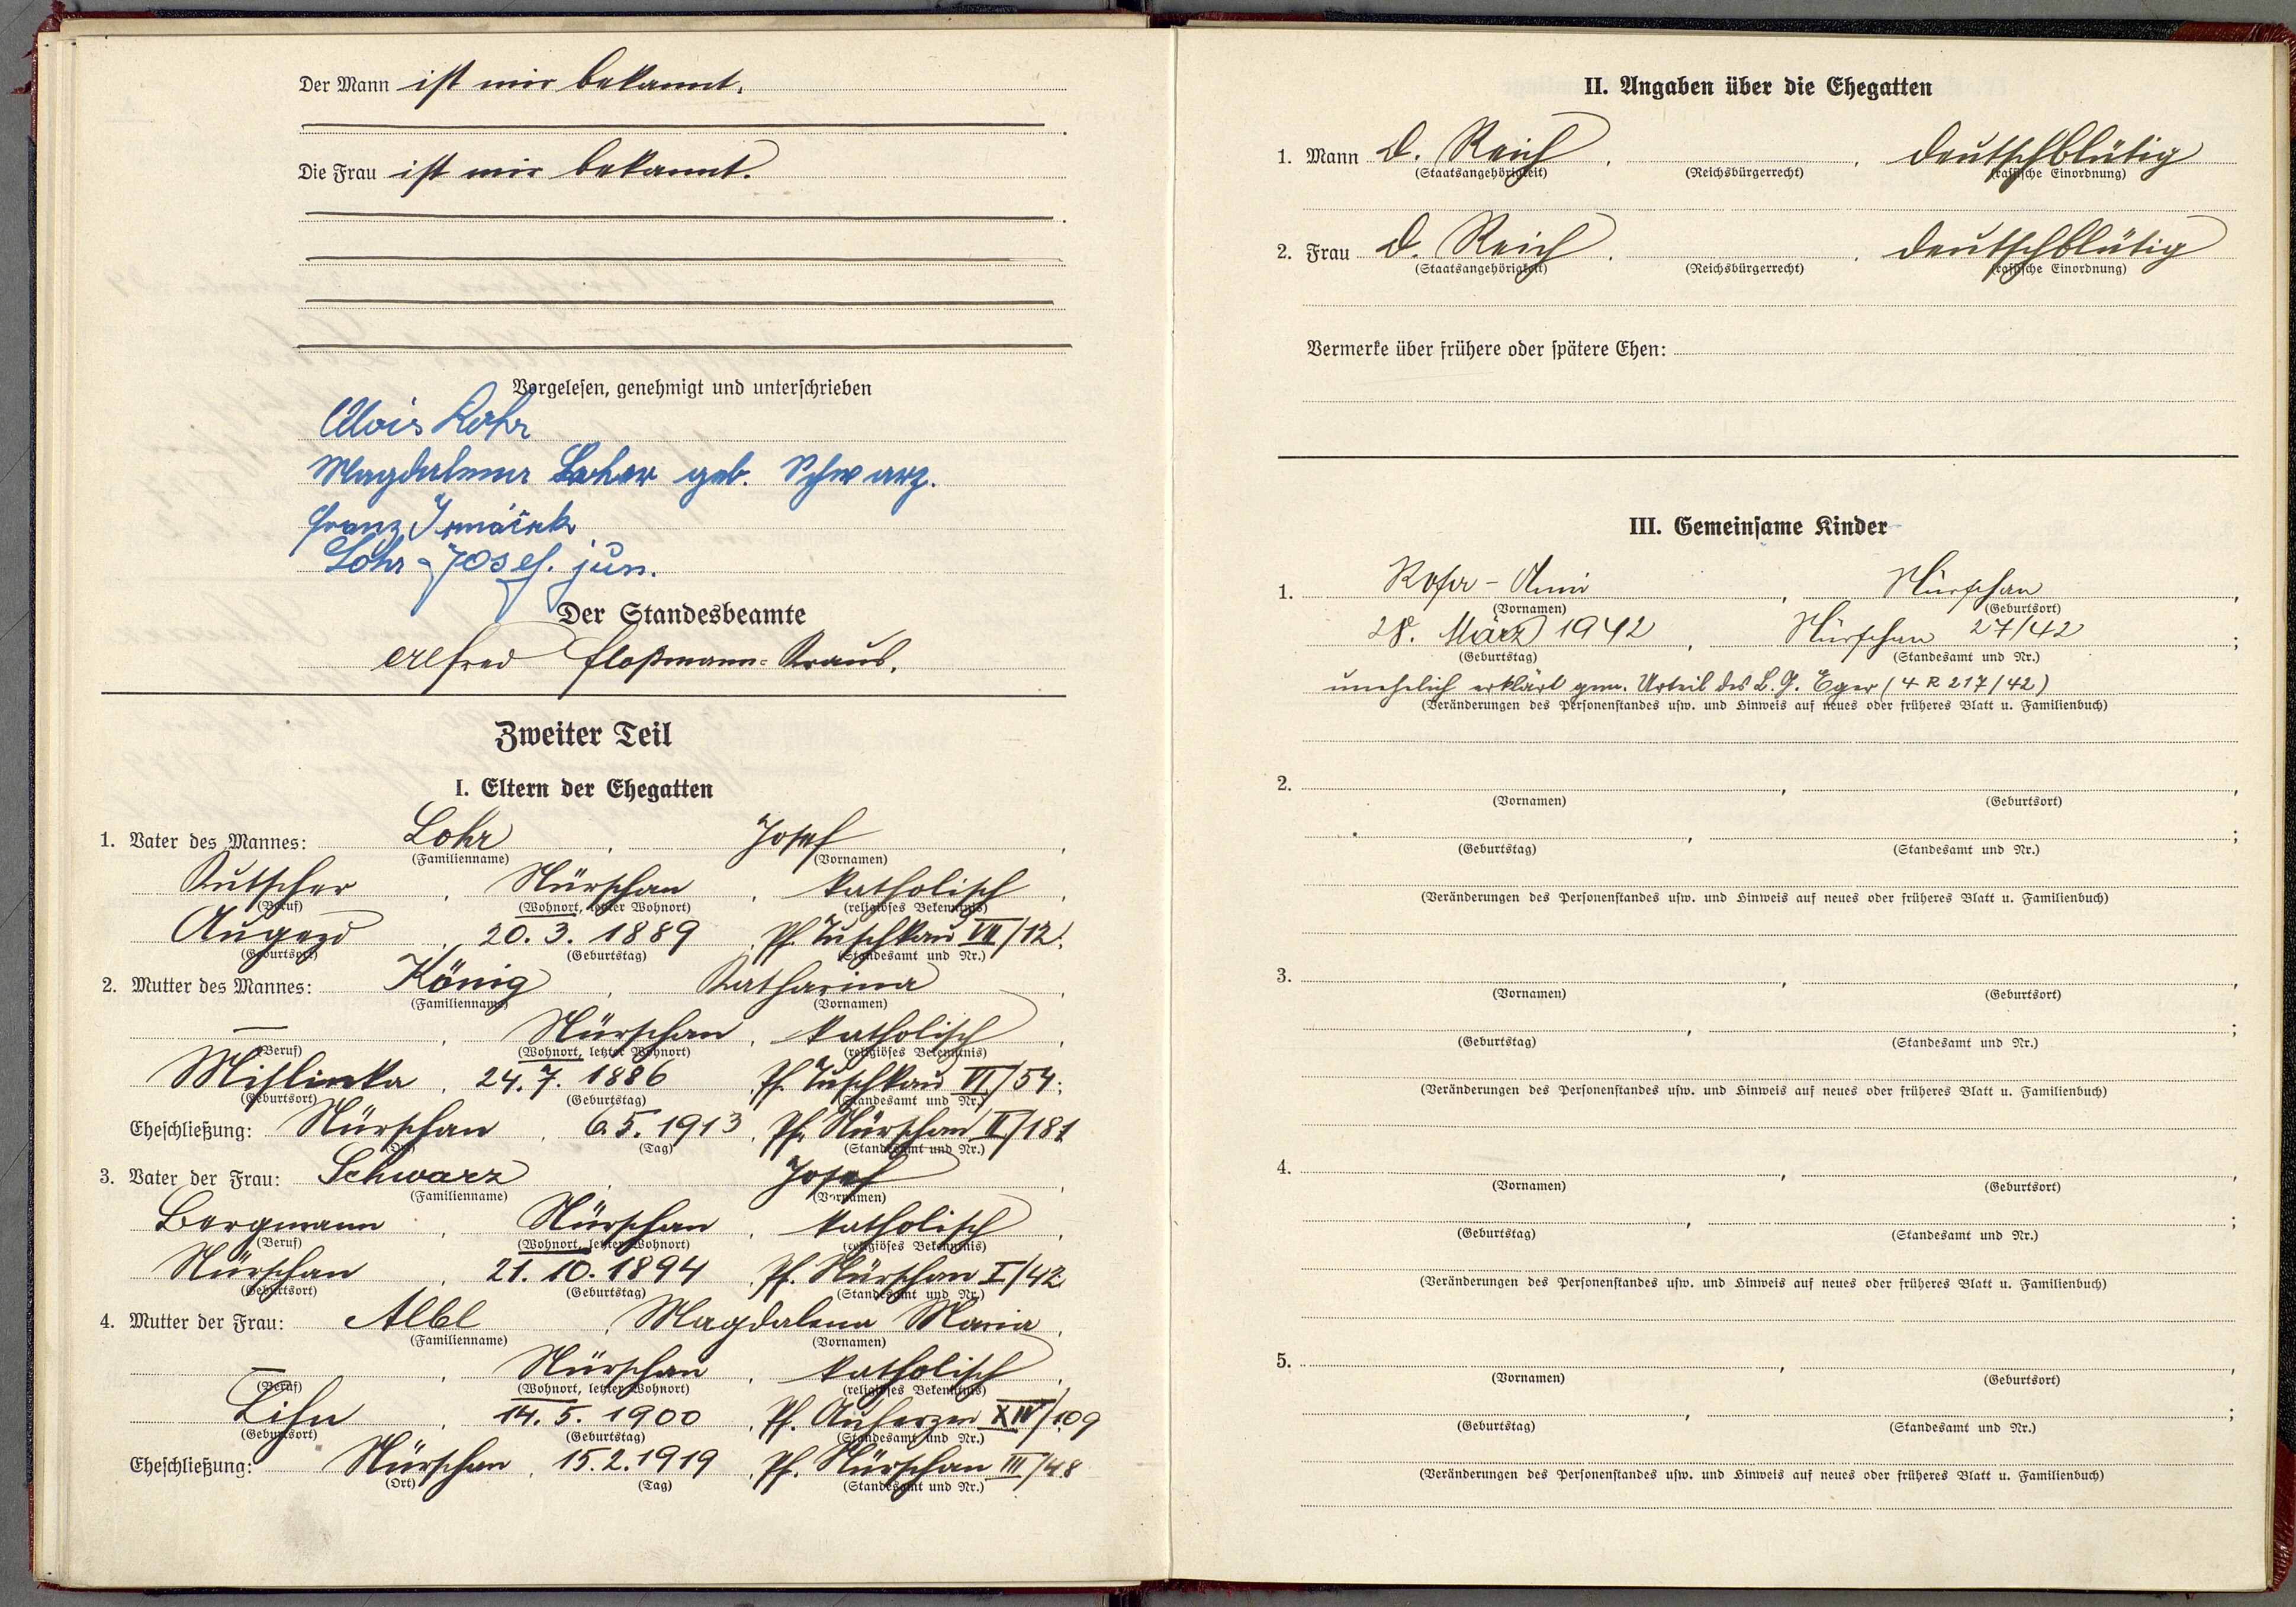 Der Mann ist mir bekannt.
Die Frau ist mir bekannt.
Vorgelesen, genehmigt und unterschrieben
Alois Lohr
Magdalena Loher geb. Schwarz.
Franz
Lohr Josef. jun.
Der Standesbeamte
Alfred Floßmann-Kraus.
Zweiter Teil
I. Eltern der Ehegatten
1. Vater des Mannes: Lohr, Josef,
(Familienname) (Vornamen)
Kutscher, Nürschan, katholisch,
(Beruf) (Wohnort, letzter Wohnort) (religiöses Bekenntnis)
Augezd, 20. 3. 1889, Pf. Tuschkau VII/12;
(Geburtsort) (Geburtstag) (Standesamt und Nr.)
2. Mutter des Mannes: König, Katharina,
(Familienname) (Vornamen)
—, Nürschan, katholisch,
(Beruf) (Wohnort, letzter Wohnort) (religiöses Bekenntnis)
Mislinka, 24. 7. 1886, Pf. Tuschkau VI/54;
(Geburtsort) (Geburtstag) (Standesamt und Nr.)
Eheschließung: Nürschan, 6.5.1913, Pf. Nürschan II/181
(Ort) (Tag) (Standesamt und Nr.)
3. Vater der Frau: Schwarz, Josef,
(Familienname) (Vornamen)
Bergmann, Nürschan, katholisch,
(Beruf) (Wohnort, letzter Wohnort) (religiöses Bekenntnis)
Nürschan, 21. 10. 1894, Pf. Nürschan I/42
(Geburtsort) (Geburtstag) (Standesamt und Nr.)
4. Mutter der Frau: Albl, Magdalena Maria,
(Familienname) (Vornamen)
—, Nürschan, katholisch,
(Beruf) (Wohnort, letzter Wohnort) (religiöses Bekenntnis)
Lihn, 14. 5. 1900, Pf. Auherzen XIV/109
(Geburtsort) (Geburtstag) (Standesamt und Nr.)
Eheschließung: Nürschan, 15.2.1919, Pf. Nürschan III/48
(Ort) (Tag) (Standesamt und Nr.)
II. Angaben über die Ehegatten
1. Mann D. Reich, , deutschblütig
(Staatsangehörigkeit) (Reichsbürgerrecht) (rassische Einordnung)
2. Frau D. Reich, , deutschblütig
(Staatsangehörigkeit) (Reichsbürgerrecht) (rassische Einordnung)
Vermerke über frühere oder spätere Ehen:
III. Gemeinsame Kinder
1. , Nürschan,
(Vornamen) (Geburtsort)
28. März 1942, Nürschan 27/42;
(Geburtstag) (Standesamt und Nr.)
unehelich erklärt gem. Urteil des L. G. Eger (4 R 217/42)
(Veränderungen des Personenstandes usw. und Hinweis auf neues oder früheres Blatt u. Familienbuch)
2. , ,
(Vornamen) (Geburtsort)
, ;
(Geburtstag) (Standesamt und Nr.)
(Veränderungen des Personenstandes usw. und Hinweis auf neues oder früheres Blatt u. Familienbuch)
3. , ,
(Vornamen) (Geburtsort)
, ;
(Geburtstag) (Standesamt und Nr.)
(Veränderungen des Personenstandes usw. und Hinweis auf neues oder früheres Blatt u. Familienbuch)
4. , ,
(Vornamen) (Geburtsort)
, ;
(Geburtstag) (Standesamt und Nr.)
(Veränderungen des Personenstandes usw. und Hinweis auf neues oder früheres Blatt u. Familienbuch)
5. , ,
(Vornamen) (Geburtsort)
, ;
(Geburtstag) (Standesamt und Nr.)
(Veränderungen des Personenstandes usw. und Hinweis auf neues oder früheres Blatt u. Familienbuch)